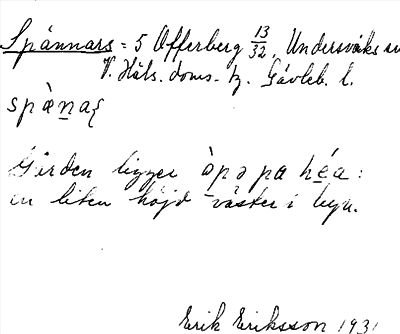 Spännars = 5 Offerberg 13/32, Undersviks sn
V. Häls. doms. tg. Gävleb. l.
spæ̀na{
Gården ligger ὰpəpa héa:
en liten höjd väster i byn.
Erik Eriksson 1931